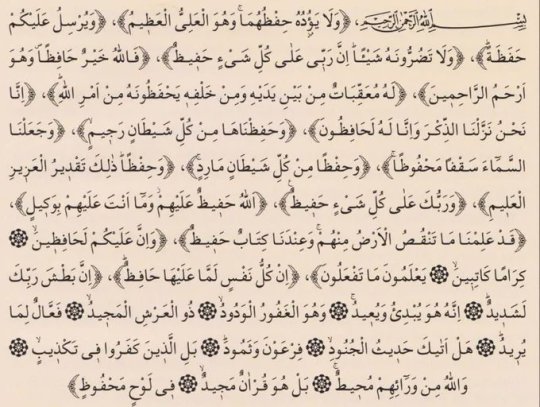 بِسْمِ اللّٰهِ الرَّحْمٰنِ الرَّحِيمِ، ﴿وَلَا يَؤُدُهُ حِفْظُهُمَاۚ وَهُوَ الْعَلِىُّ الْعَظِيمُ﴾، ﴿وَيُرْسِلُ عَلَيْكُمْ
حَفَظَةً﴾، ﴿وَلَا تَضُرُّونَهُ شَيْـًٔاۜ اِنَّ رَبِّى عَلٰى كُلِّ شَىْءٍ حَفِيظٌ﴾، ﴿فَاللّٰهُ خَيْرٌ حَافِظًا وَهُوَ
اَرْحَمُ الرَّاحِمِينَ﴾، ﴿لَهُ مُعَقِّبَاتٌ مِنْ بَيْنِ يَدَيْهِ وَمِنْ خَلْفِهِ يَحْفَظُونَهُ مِنْ اَمْرِ اللّٰهِ﴾، ﴿اِنَّا
نَحْنُ نَزَّلْنَا الذِّكْرَ وَاِنَّا لَهُ لَحَافِظُونَ﴾، ﴿وَحَفِظْنَاهَا مِنْ كُلِّ شَيْطَانٍ رَجِيمٍ﴾، ﴿وَجَعَلْنَا
السَّمَٓاءَ سَقْفًا مَحْفُوظًا﴾، ﴿وَحِفْظًا مِنْ كُلِّ شَيْطَانٍ مَارِدٍ﴾، ﴿وَحِفْظًاۜ ذٰلِكَ تَقْدِيرُ الْعَزِيزِ
الْعَلِيمِ﴾، ﴿وَرَبُّكَ عَلٰى كُلِّ شَىْءٍ حَفِيظٌ﴾، ﴿اللّٰهُ حَفِيظٌ عَلَيْهِمْۘ وَمَٓا اَنْتَ عَلَيْهِمْ بِوَكِيلٍ﴾،
﴿قَدْ عَلِمْنَا مَا تَنْقُصُ الْاَرْضُ مِنْهُمْۚ وَعِنْدَنَا كِتَابٌ حَفِيظٌ﴾، ﴿وَاِنَّ عَلَيْكُمْ لَحَافِظِينَۙ ۞
كِرَامًا كَاتِبِينَۙ ۞ يَعْلَمُونَ مَا تَفْعَلُونَ﴾، ﴿اِنْ كُلُّ نَفْسٍ لَمَّا عَلَيْهَا حَافِظٌ﴾، ﴿اِنَّ بَطْشَ رَبِّكَ
لَشَدِيدٌ ۞ اِنَّهُ هُوَ يُبْدِئُ وَيُعِيدُۚ ۞ وَهُوَ الْغَفُورُ الْوَدُودُۙ ۞ ذُو الْعَرْشِ الْمَجِيدُۙ ۞ فَعَّالٌ لِمَا
يُرِيدُ ۞ هَلْ اَتٰيكَ حَدِيثُ الْجُنُودِۙ ۞ فِرْعَوْنَ وَثَمُودَ ۞ بَلِ الَّذِينَ كَفَرُوا فِى تَكْذِيبٍۙ ۞
وَاللّٰهُ مِنْ وَرَٓائِهِمْ مُحِيطٌۚ ۞ بَلْ هُوَ قُرْاٰنٌ مَجِيدٌۙ ۞ فِى لَوْحٍ مَحْفُوظٍ﴾